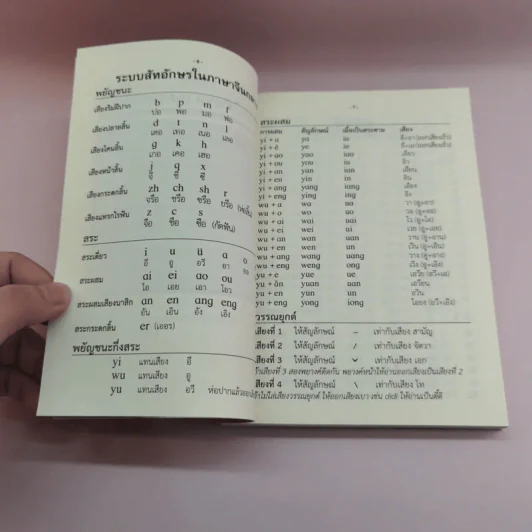 ระบบสัทอักษรในภาษาจีนกลาง
พยัญชนะ
เสียงริมฝีปาก b p m f
ปอ พอ มอ ฟอ
เสียงปลายลิ้น d t n l
เตอ เทอ เนอ เลอ
เสียงโคนลิ้น g k h
เกอ เคอ เฮอ
เสียงหน้าลิ้น j q x
จี ชี ซี
เสียงกระดกลิ้น zh ch sh r
จรือ ชรือ ซรือ ยรือ
เสียงแทรกไรฟัน z c s
จือ ชือ ซือ (กัดฟัน)
สระ
สระเดี่ยว i u ü a o
อี อู อวี อา
สระผสม ai ei ao ou
ไอ เอย เอา โอว
สระผสมเสียงนาสิก an en ang eng
อัน เอิน อัง เอิง
สระกระดกลิ้น er (เออร)
พยัญชนะกึ่งสระ
yi แทนเสียง อี
wu แทนเสียง อู
yu แทนเสียง อวี ห่อปากแล้วออก
สระผสม
การผสม สัญลักษณ์ เมื่อเป็นสระตาม เสียง
yi + a ya ia
yi + ê ye ie
yi + ao yao iao เอียว
yi + ou you iu อิว
yi + an yan ian เอียน
yi + en yin in อิน
yi + ang yang iang เอียง
yi + eng ying ing อิง
wu + a wa ua วา (อู+อา)
wu + o wo uo วอ (อู+ออ)
wu + ai wai uai ไว (อู+ไอ)
wu + ei wei ui เวย (อู+เอย)
wu + an wan uan วาน (อู+อาน)
wu + en wen un เวิน (อู+เอิน)
wu + ang wang uang วาง (อู+อาง)
wu + eng weng ong เวิง (อู+เอิง)
yu + ê yue ue
yu + an yuan uan เอวียน
yu + en yun un อวิน
yu + eng yong iong
วรรณยุกต์
เสียงที่ 1 ให้สัญลักษณ์ – เท่ากับเสียง สามัญ
เสียงที่ 2 ให้สัญลักษณ์ / เท่ากับเสียง จัตวา
เสียงที่ 3 ให้สัญลักษณ์ ˇ เท่ากับเสียง เอก
ถ้าเสียงที่ 3 สองพยางค์ติดกัน พยางค์หน้าให้อ่านออกเสียงเป็นเสียงที่ 2
เสียงที่ 4 ให้สัญลักษณ์ \ เท่ากับเสียง โท
ถ้าไม่ใส่เสียงวรรณยุกต์ ให้ออกเสียงเบา เช่น didi ให้อ่านเป็นตี้ตี